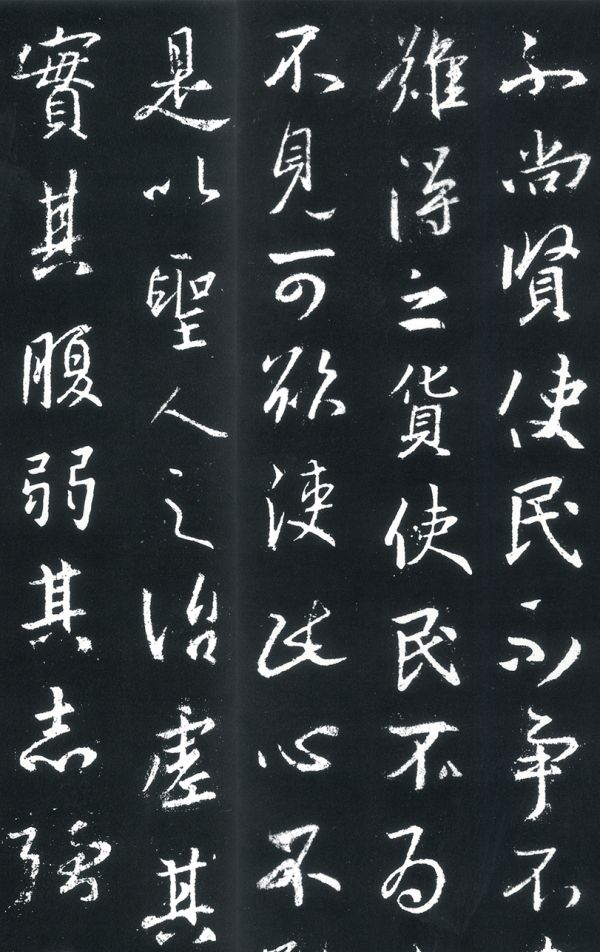 不尚賢使民不争不
難得之貨使民不為
不見可欲使此心不
是以聖人之治虛其
實其腹弱其志強